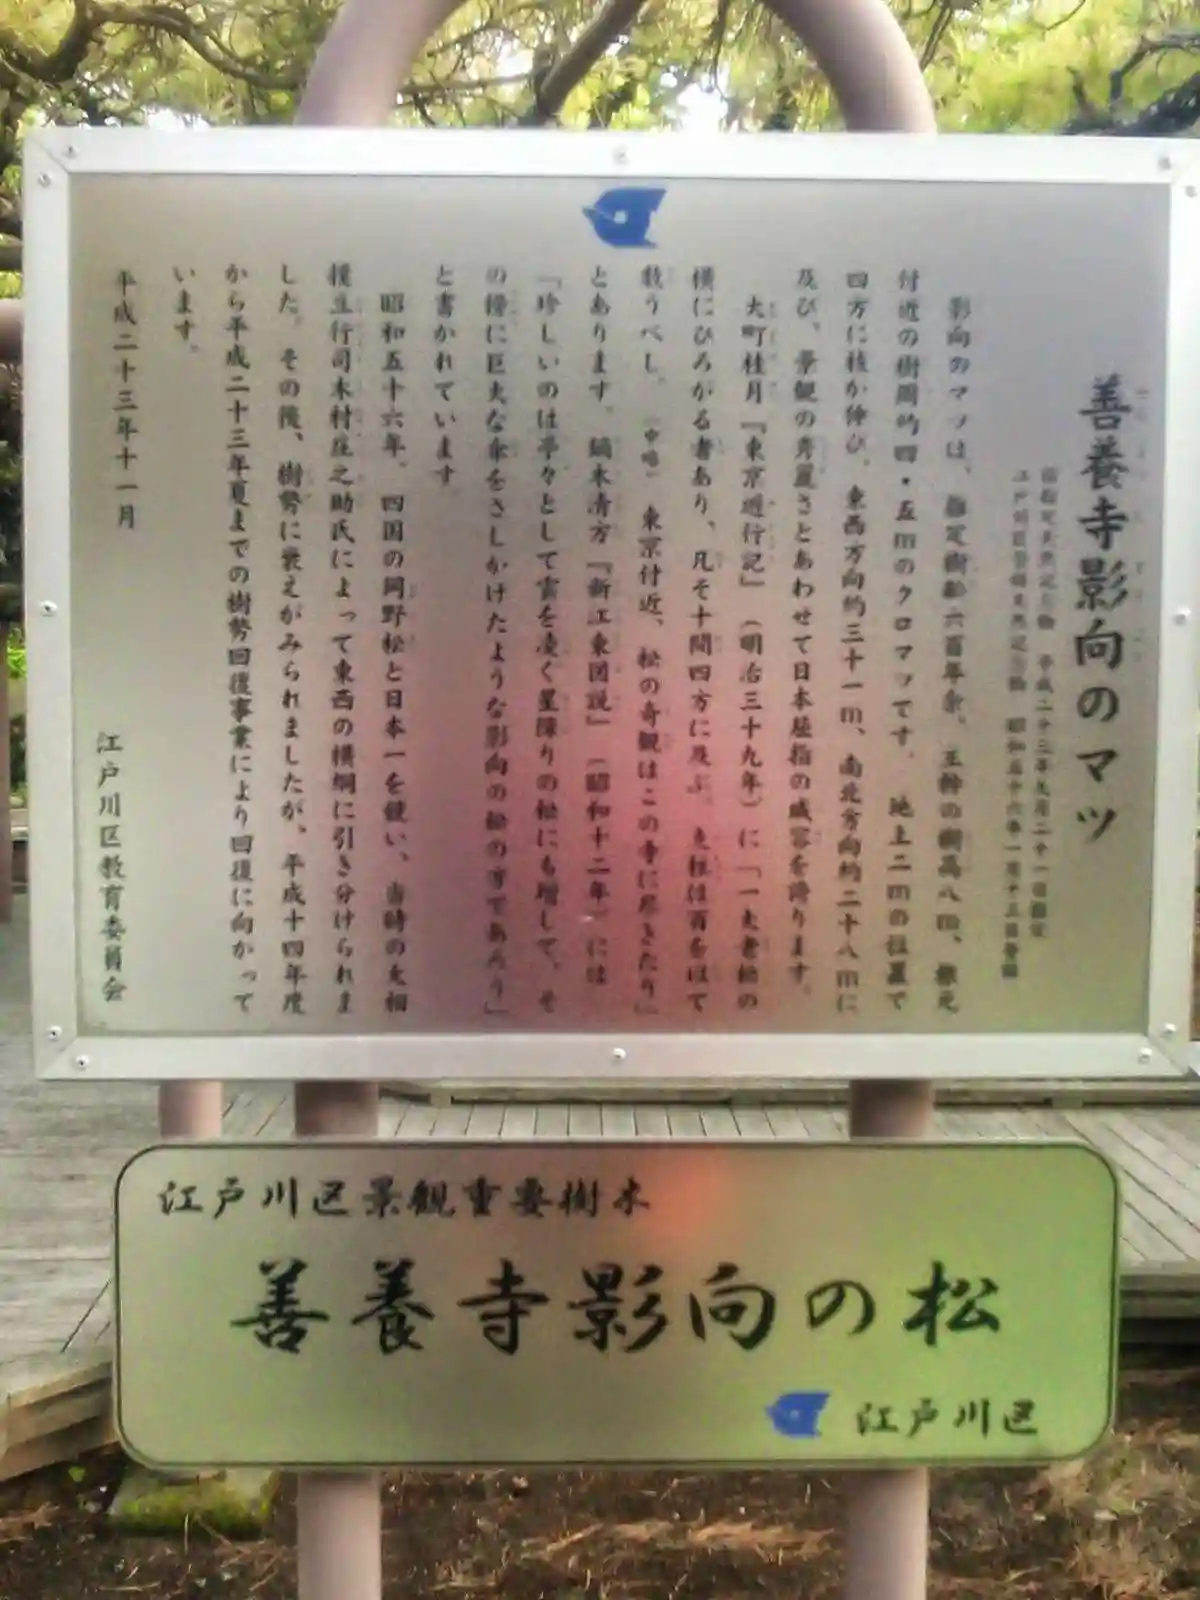 善養寺影向のマツ
国指定天然記念物 平成二十三年九月二十一日指定
江戸川区登録天然記念物 昭和五十六年一月十三日登録
影向のマツは、推定樹齢六百年余、主幹の樹高八m、根元
付近の樹周約四・五mのクロマツです。 地上二mの位置で
四方に枝が伸び、東西方向約三十一m、南北方向約二十八mに
及び、景観の秀麗さとあわせて日本屈指の威容を誇ります。
大町桂月『東京遊行記』(明治三十九年)に「一大老松の
横にひろがる者あり、凡そ十間四方に及ぶ。支柱は百を以て
数うべし。(中略) 東京付近、松の奇観はこの寺に尽きたり」
とあります。鏑木清方『新江東図説』(昭和十二年)には
「珍しいのは亭々として雲を凌ぐ星降りの松にも増して、そ
の傍に巨大な傘をさしかけたような影向の松の方であろう」
と書かれています。
昭和五十六年、四国の岡野松と日本一を競い、当時の大相
撲立行司木村庄之助氏によって東西の横綱に引き分けられま
した。その後、樹勢に衰えがみられましたが、平成十四年度
から平成二十三年夏までの樹勢回復事業により回復に向かって
います。
平成二十三年十一月
江戸川区教育委員会
江戸川区景観重要樹木
善養寺影向の松
江戸川区